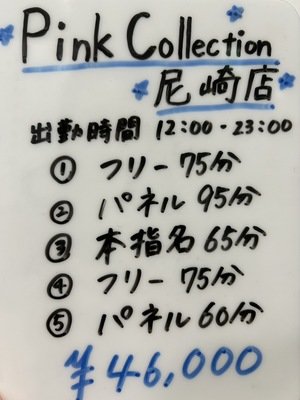 Pink Collection
尼崎店
出勤時間 12:00-23:00
① フリー 75分
② パネル 95分
③ 本指名 65分
④ フリー 75分
⑤ パネル 60分
¥46,000